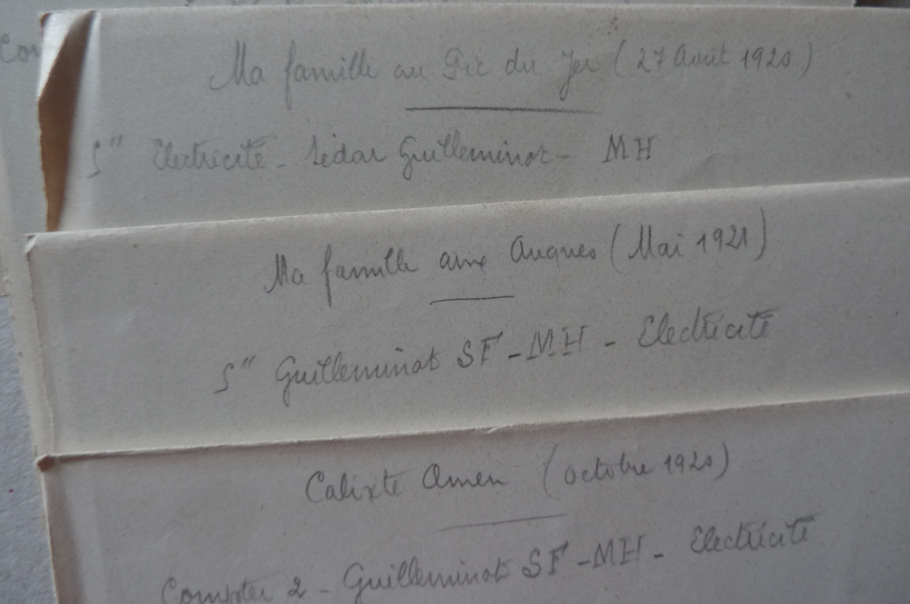 Com
Ma famille au Pic du Jer (27 Août 1920)
5" Electricité - Sédar Guilleminot - MH
Ma famille aux Auques (Mai 1921)
5" Guilleminot SF - MH - Electricité
Calixte Amen (octobre 1920)
Compter 2 - Guilleminot SF - MH - Electricité